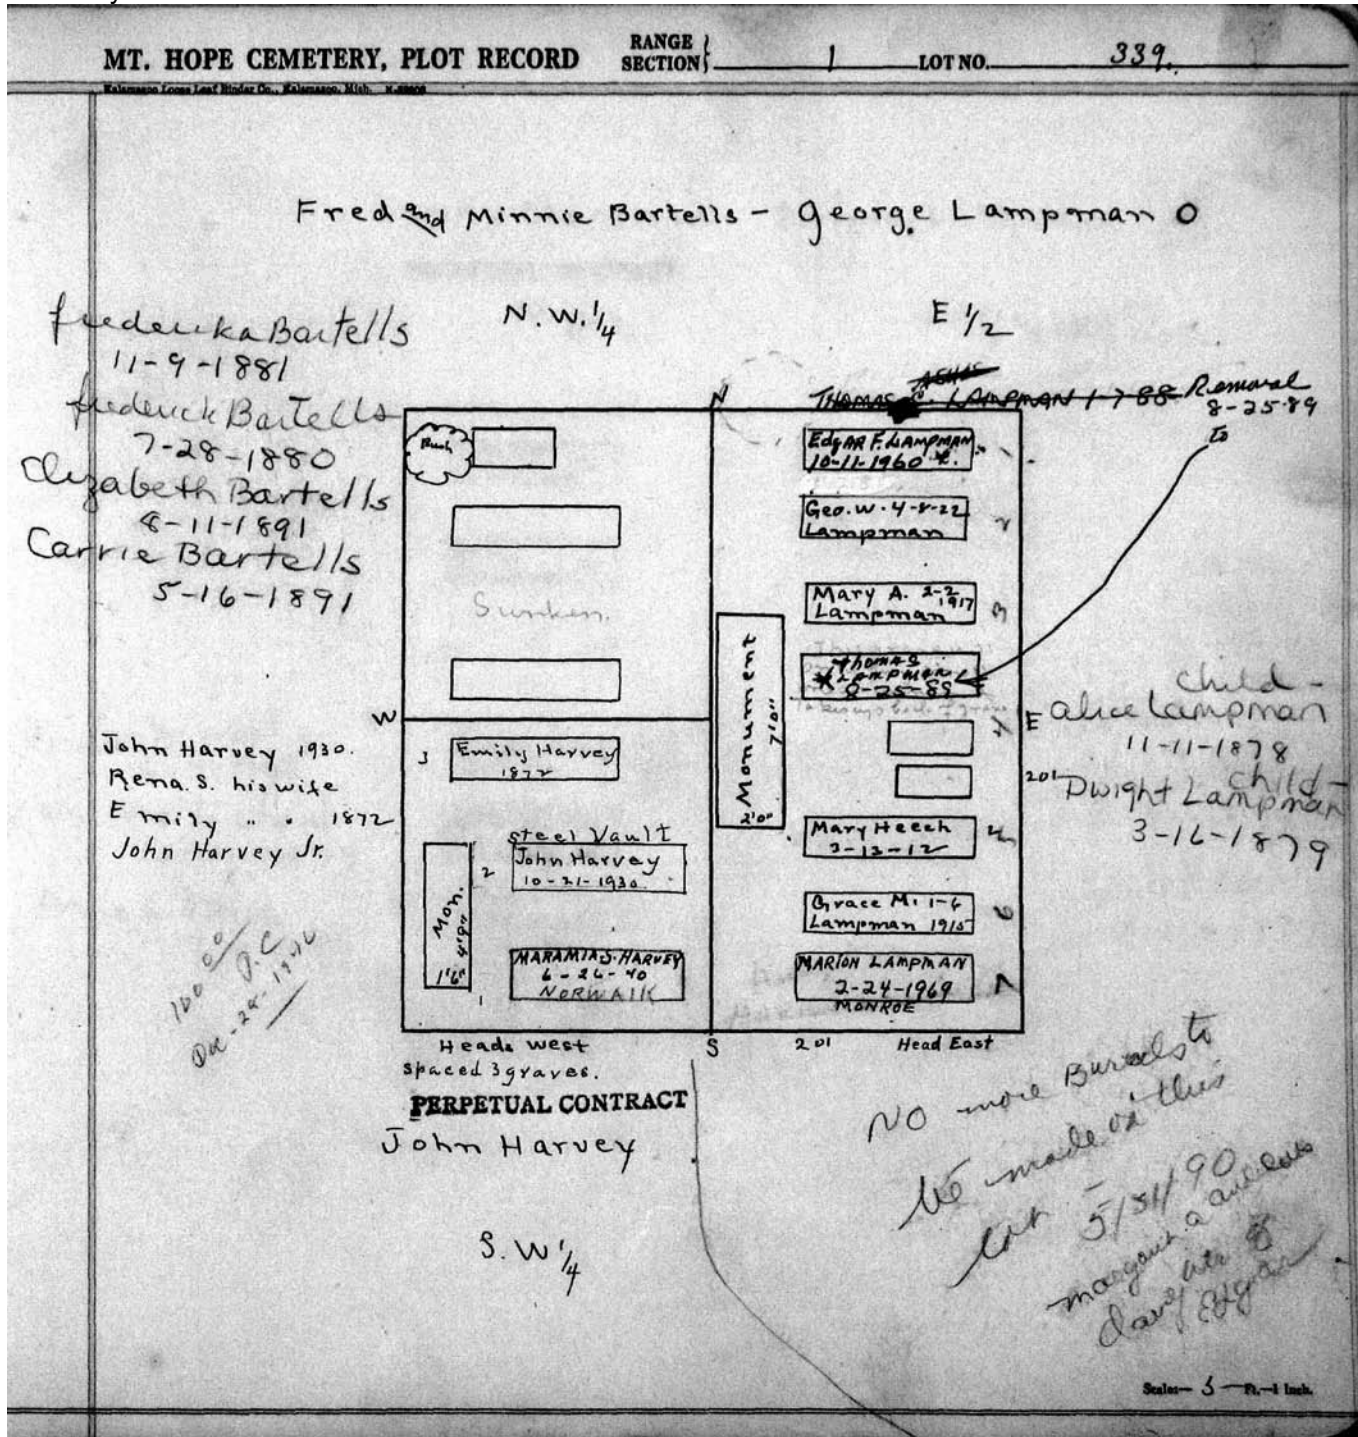 MT. HOPE CEMETERY, PLOT RECORD
RANGE
SECTION
1
LOT NO.
339.
Kalamazoo Loose Leaf Binder Co., Kalamazoo, Mich.
Fred and Minnie Bartells - George Lampman O
N.W. 1/4
E 1/2
Frederika Bartells
11-9-1881
Frederick Bartells
7-28-1880
Elizabeth Bartells
8-11-1891
Carrie Bartells
5-16-1891
ASHES
THOMAS S. LAMPMAN 1-7-88 Removal
8-25-89
to
N
Bush
Sunken
Edgar F. LAMPMAN
10-11-1960 *.
Geo. W. 4-8-22
Lampman
2
Mary A. 2-2
1917
Lampman
3
Thomas
* LAMPMAN
8-25-89
4
Monument
7'0"
2'0"
W
E
201
Child -
Alice Lampman
11-11-1878
Child -
Dwight Lampman
3-16-1879
John Harvey 1930.
Rena. S. his wife
Emily " " 1872
John Harvey Jr.
3
Emily Harvey
1872
steel Vault
2
John Harvey
10-21-1930
Mon.
4'9"
1'6"
1
MARAMIA S. HARVEY
6-26-40
NORWALK
Mary Heech
3-13-12
5
Grace M. 1-6
Lampman 1915
6
MARION LAMPMAN
2-24-1969
MONROE
7
100 00
P.C
Dec-28-
Heads west
spaced 3 graves.
S
201
Head East
PERPETUAL CONTRACT
John Harvey
S.W 1/4
NO more Burials to
be made on this
lot - 5/31/90
daughter of
Edgar
Scale:- 5 -Ft.-1 Inch.